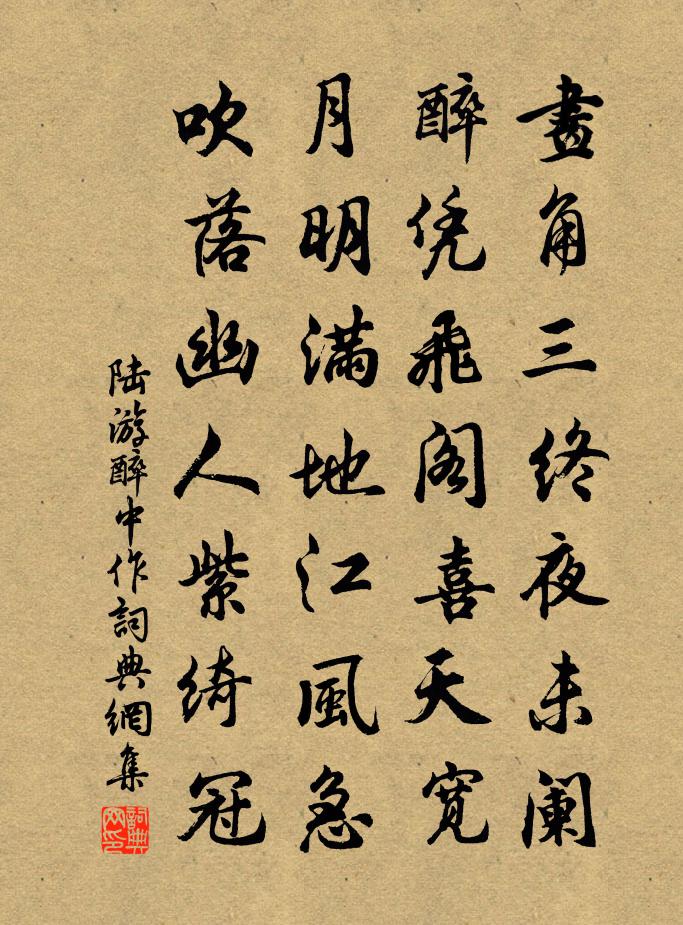 畫角三終夜未阑
醉凭飛阁喜天寬
月明滿地江風急
吹落幽人紫绮冠
陆游醉中作詞典網集
詞典
网印